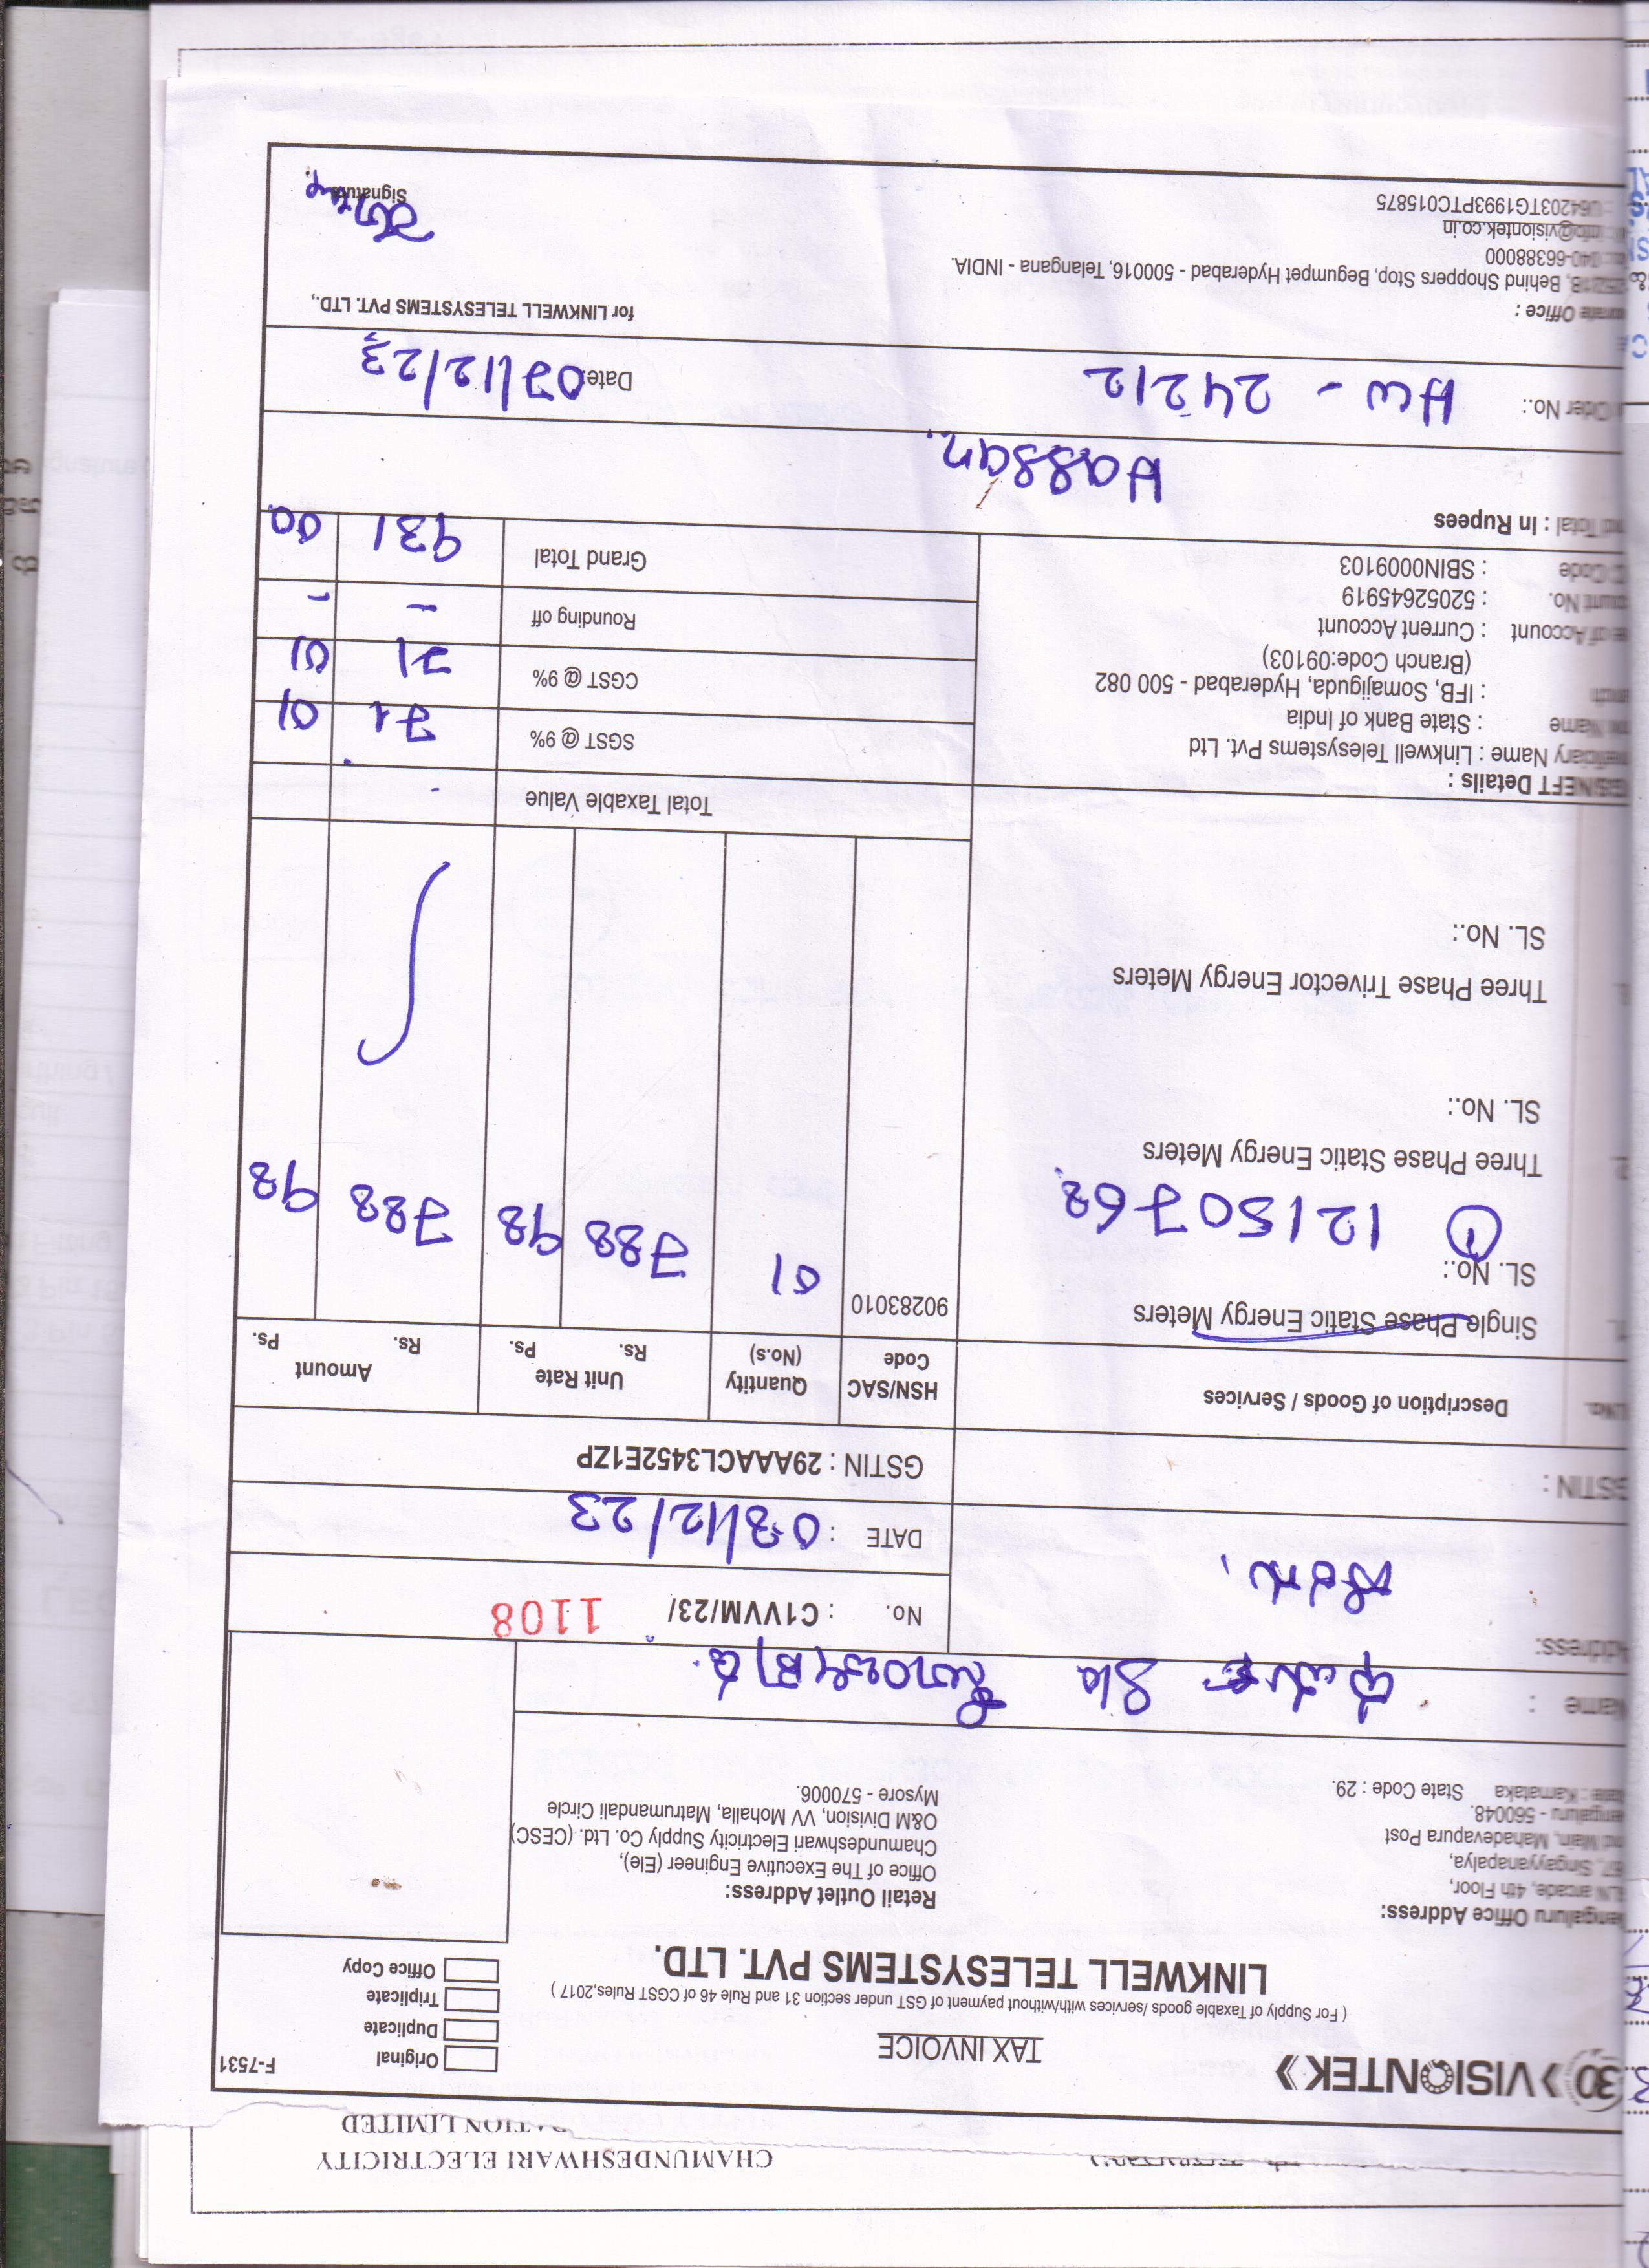 CHAMUNDESHWARI ELECTRICITY
RATION LIMITED
30 VISIONTEK
TAX INVOICE
F-7531
( For Supply of Taxable goods /services with/without payment of GST under section 31 and Rule 46 of CGST Rules,2017 )
Original
Duplicate
Triplicate
Office Copy
LINKWELL TELESYSTEMS PVT. LTD.
engaluru Office Address:
LN arcade, 4th Floor,
67, Singayyanapalya,
nd Main, Mahadevapura Post
engaluru - 560048.
ate : Karnataka State Code : 29.
Retail Outlet Address:
Office of The Executive Engineer (Ele),
Chamundeshwari Electricity Supply Co. Ltd. (CESC)
O&M Division, VV Mohalla, Matrumandali Circle
Mysore - 570006.
Name : S/o
Address:
No. : C1VVM/23/ 1108
DATE : 08/12/23
GSTIN :
GSTIN : 29AAACL3452E1ZP
Description of Goods / Services
HSN/SAC Code
Quantity (No.s)
Unit Rate Rs. Ps.
Amount Rs. Ps.
Single Phase Static Energy Meters 90283010 01 788 98 788 98
SL. No.:
① 12150768
Three Phase Static Energy Meters
SL. No.:
Three Phase Trivector Energy Meters
SL. No.:
Total Taxable Value
GS/NEFT Details :
neficiary Name : Linkwell Telesystems Pvt. Ltd
nk Name : State Bank of India
anch : IFB, Somajiguda, Hyderabad - 500 082
(Branch Code:09103)
e of Account : Current Account
ount No. : 52052645919
C Code : SBIN0009103
SGST @ 9% 71 01
CGST @ 9% 71 01
Rounding off - -
Grand Total 931 00
nd Total : In Rupees
Hassan.
Oder No.: HW - 24212
Date: 07/12/23
orate Office :
52/1B, Behind Shoppers Stop, Begumpet Hyderabad - 500016, Telangana - INDIA.
: 040-66388000
: info@visiontek.co.in
: U64203TG1993PTC015875
for LINKWELL TELESYSTEMS PVT. LTD.,
Signature